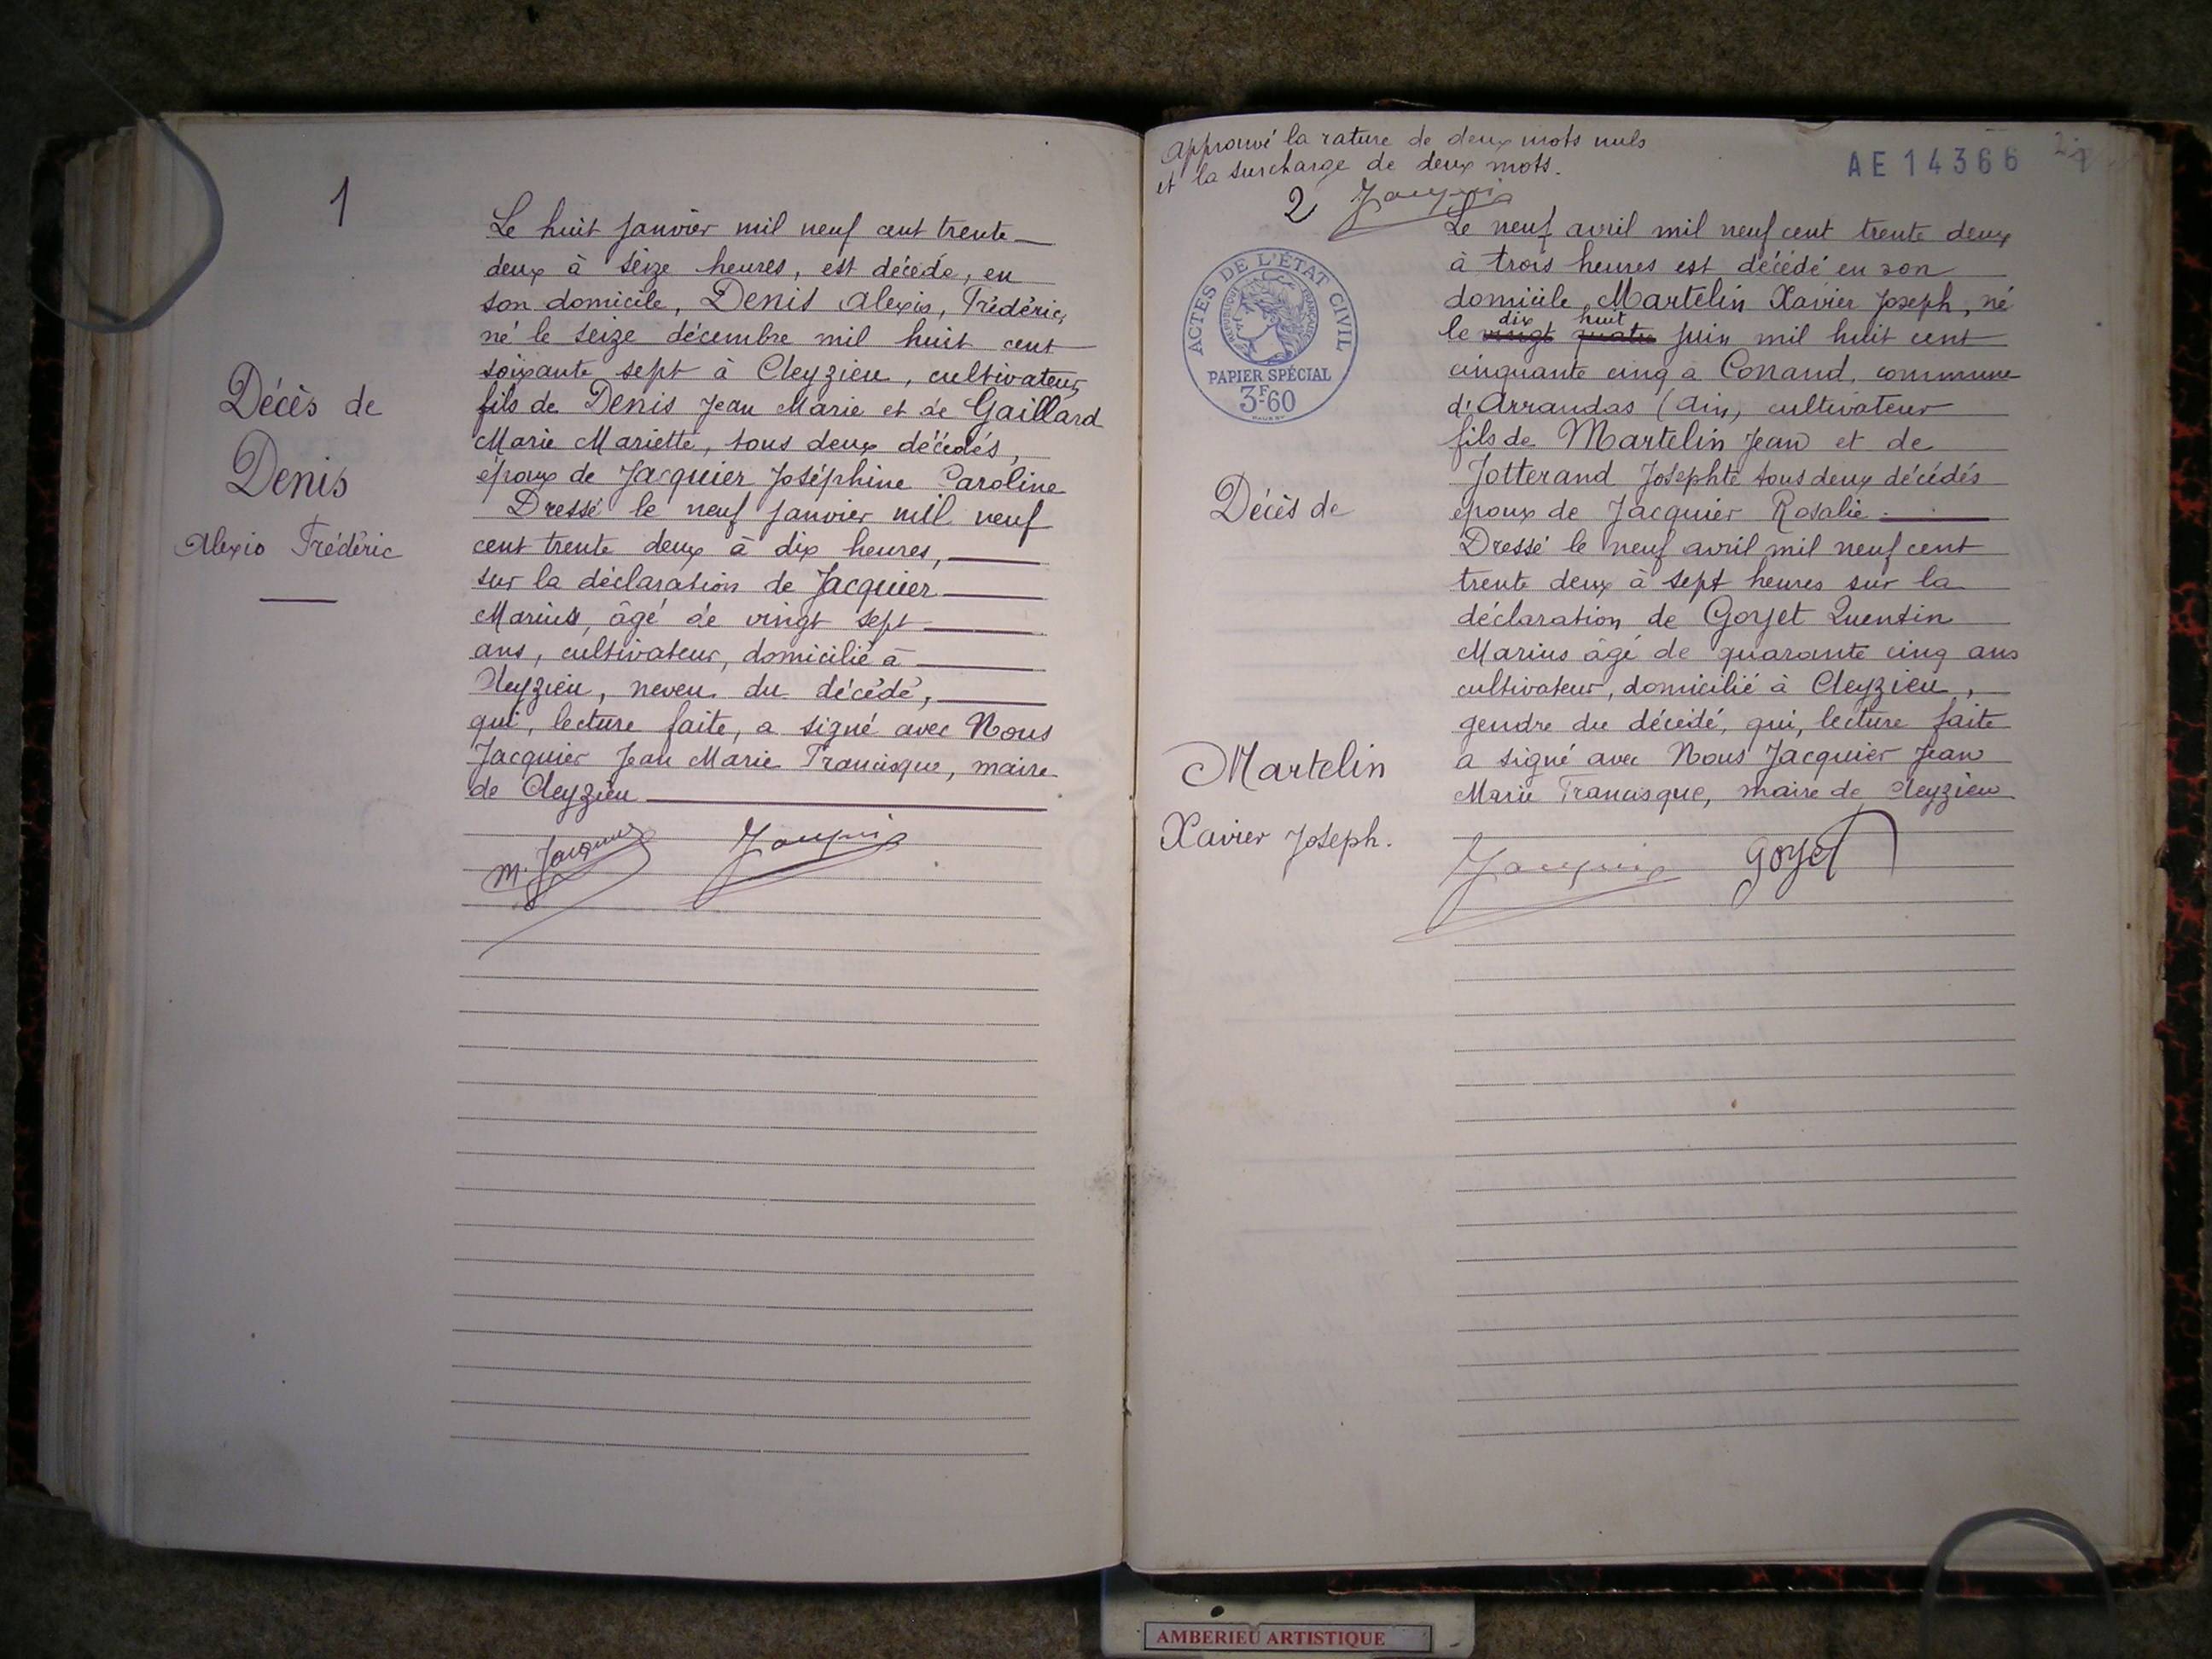 1
Décès de
Denis
Alexis Frédéric
Le huit janvier mil neuf cent trente
deux à seize heures, est décédé, en
son domicile, Denis Alexis, Frédéric,
né le seize décembre mil huit cent
soixante sept à Cleyzieu, cultivateur,
fils de Denis Jean Marie et de Gaillard
Marie Mariette, tous deux décédés,
époux de Jacquier Joséphine Caroline
Dressé le neuf janvier mil neuf
cent trente deux à dix heures,
sur la déclaration de Jacquier
Marius, âgé de vingt sept
ans, cultivateur, domicilié à
Cleyzieu, neveu du décédé,
qui, lecture faite, a signé avec Nous
Jacquier Jean Marie Francisque, maire
de Cleyzieu
M. Jacquier Jacquier
Approuvé la rature de deux mots nuls
et la surcharge de deux mots.
Jacquier
AE 14366
2
ACTES DE L'ÉTAT CIVIL
RÉPUBLIQUE FRANÇAISE
PAPIER SPÉCIAL
3F.60
Décès de
Martelin
Xavier Joseph.
Le neuf avril mil neuf cent trente deux
à trois heures est décédé en son
domicile, Martelin Xavier Joseph, né
dix huit
le vingt quatre juin mil huit cent
cinquante cinq à Conand, commune
d'Arrandas (Ain), cultivateur
fils de Martelin Jean et de
Jotterand Josephte tous deux décédés
époux de Jacquier Rosalie.
Dressé le neuf avril mil neuf cent
trente deux à sept heures sur la
déclaration de Goyet Quentin
Marius âgé de quarante cinq ans
cultivateur, domicilié à Cleyzieu,
gendre du décédé, qui, lecture faite
a signé avec Nous Jacquier Jean
Marie Francisque, maire de Cleyzieu
Jacquier Goyet
AMBERIEU ARTISTIQUE